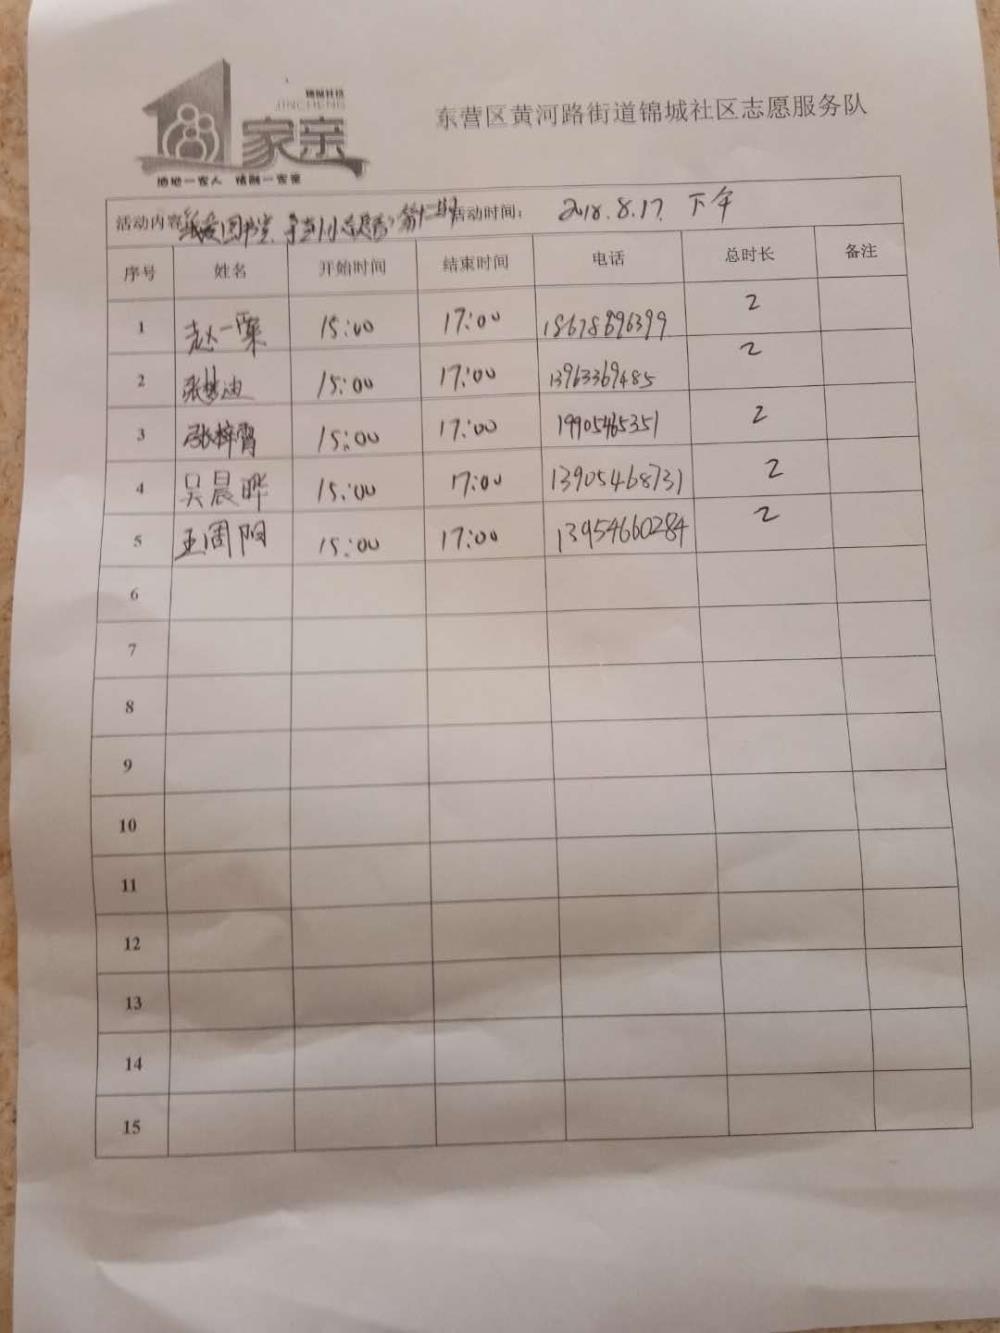 锦城社区
JINCHENG
家亲
东营区黄河路街道锦城社区志愿服务队
活动内容 图书 第十二期 活动时间： 2018.8.17 下午
序号 姓名 开始时间 结束时间 电话 总时长 备注
1 赵一 15:00 17:00 18678896399 2
2 张梦迪 15:00 17:00 13963369485 2
3 张梓霄 15:00 17:00 19905465351 2
4 吴晨晔 15:00 17:00 13905468731 2
5 王周阳 15:00 17:00 13954660284 2
6
7
8
9
10
11
12
13
14
15